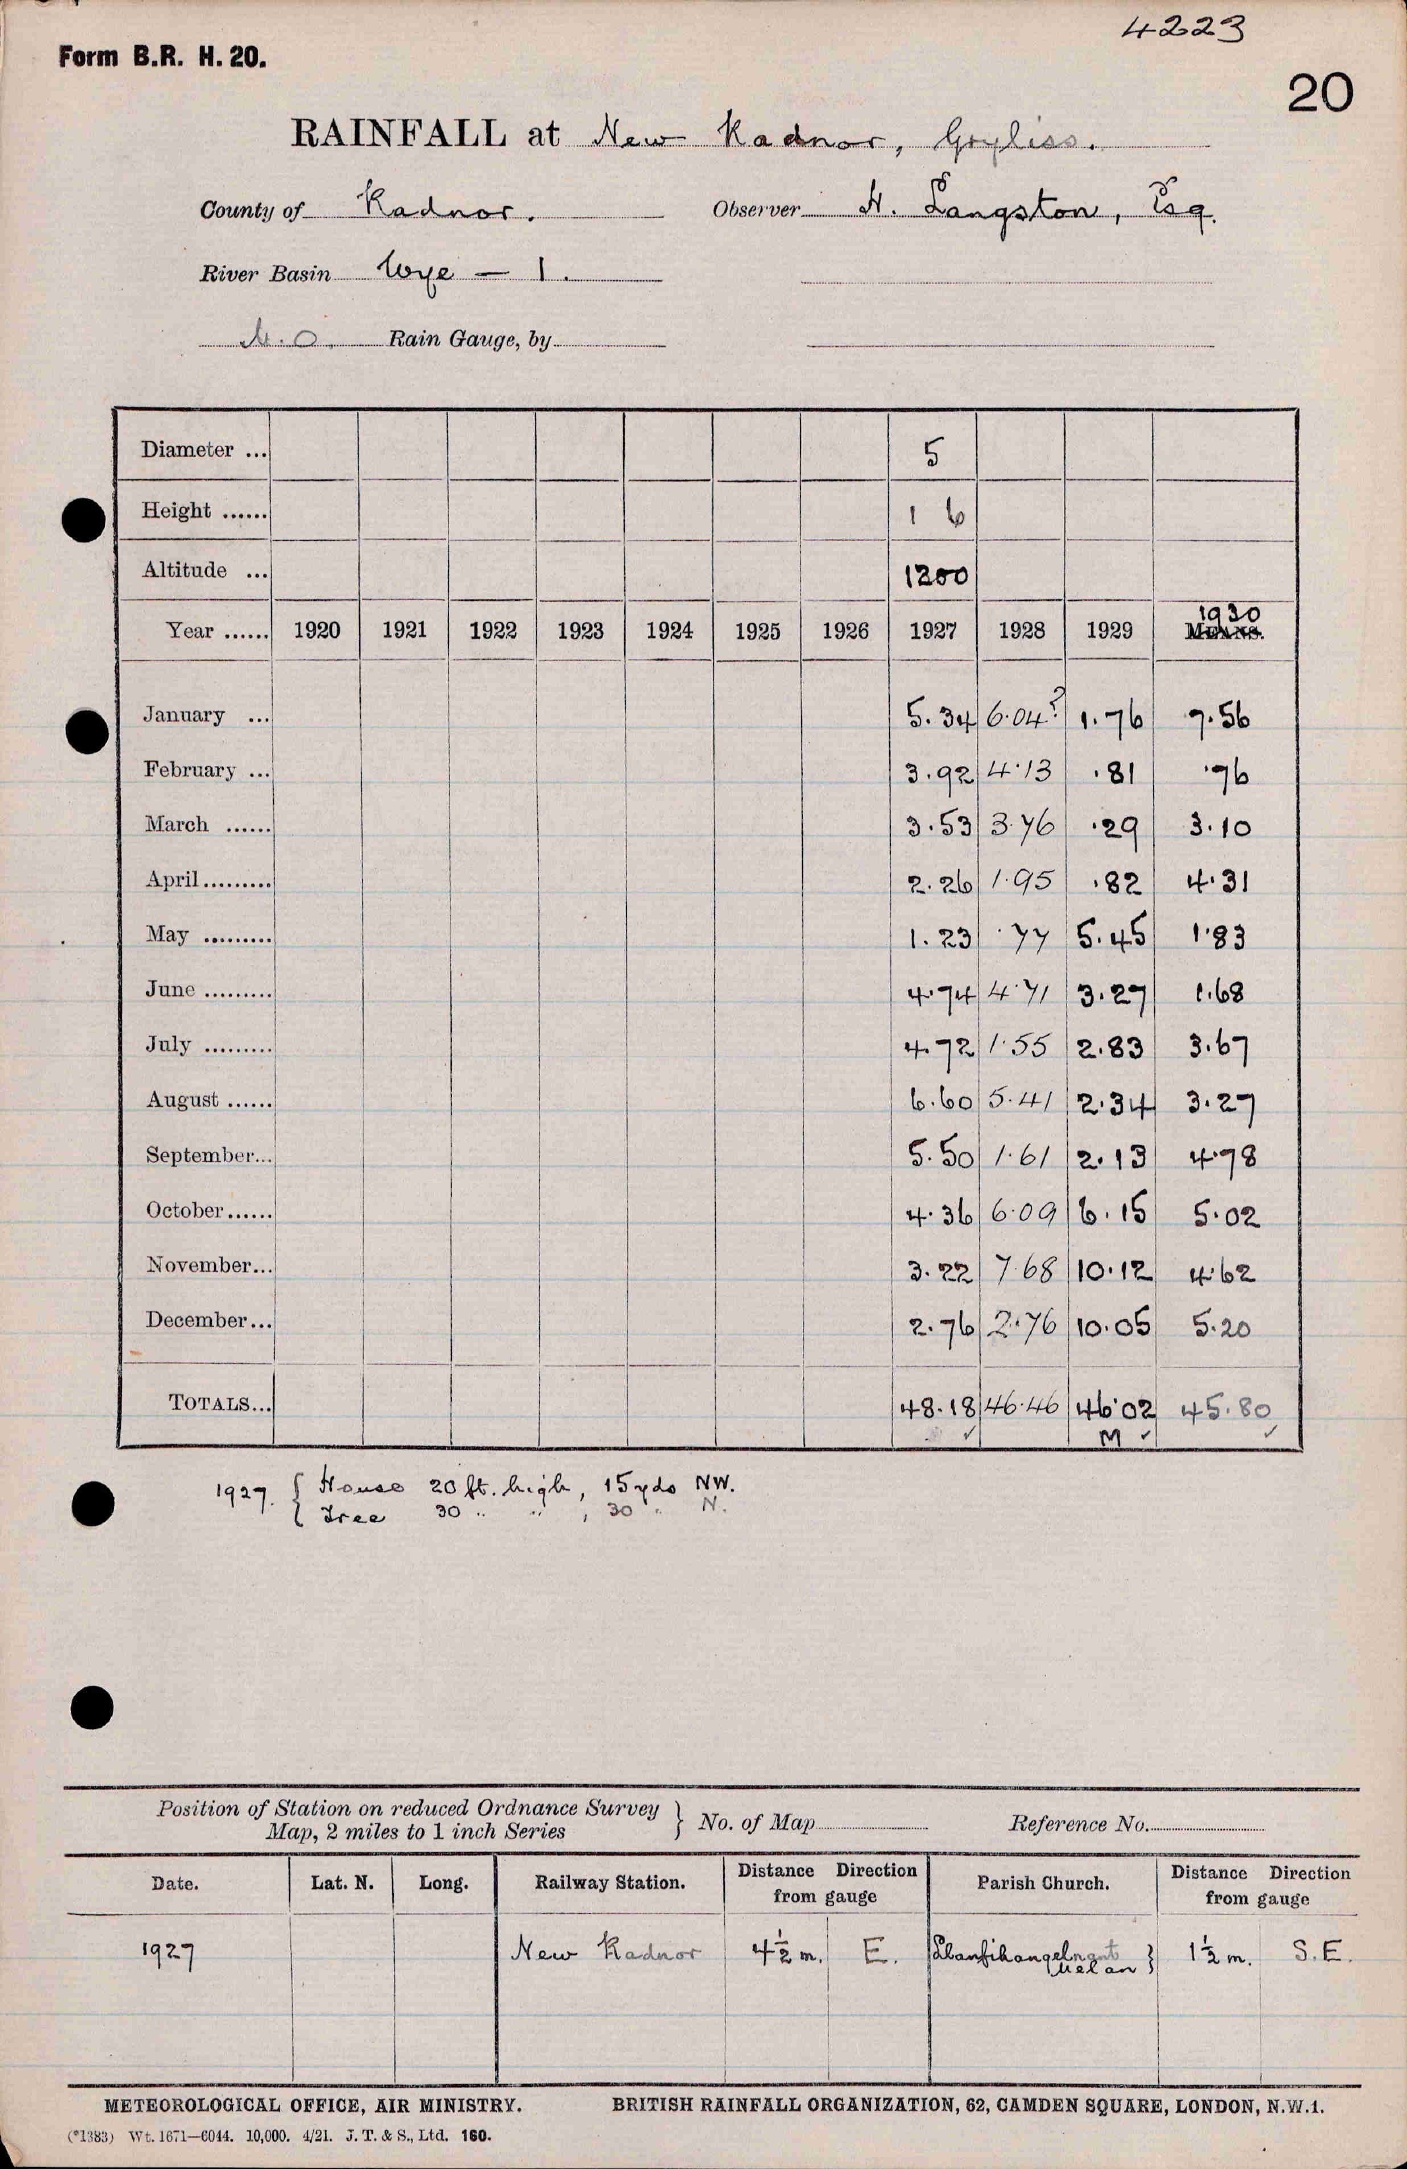 4223
Form B.R. H. 20.
20
RAINFALL at New Radnor,
County of Radnor. Observer H. Langston, Esq.
River Basin Wye — 1.
M.O. Rain Gauge, by
Diameter ... 5
Height ...... 1 6
Altitude ... 1200
Year ...... 1920 1921 1922 1923 1924 1925 1926 1927 1928 1929 1930 MEANS.
January ... 5.34 6.04? 1.76 7.56
February ... 3.92 4.13 .81 .76
March ...... 3.53 3.76 .29 3.10
April......... 2.26 1.95 .82 4.31
May ......... 1.23 .77 5.45 1.83
June ......... 4.74 4.71 3.27 1.68
July ......... 4.72 1.55 2.83 3.67
August ...... 6.60 5.41 2.34 3.27
September... 5.50 1.61 2.13 4.78
October...... 4.36 6.09 6.15 5.02
November... 3.22 7.68 10.12 4.62
December... 2.76 2.76 10.05 5.20
TOTALS... 48.18 46.46 46.02 45.80
✓ M ✓ ✓
1927. { House 20 ft. high, 15 yds NW.
{ Tree 30 " " , 30 " N.
Position of Station on reduced Ordnance Survey
Map, 2 miles to 1 inch Series } No. of Map Reference No.
Date. Lat. N. Long. Railway Station. Distance Direction from gauge Parish Church. Distance Direction from gauge
1927 New Radnor 4½ m. E. Llanfihangel nant Melan } 1½ m. S.E.
METEOROLOGICAL OFFICE, AIR MINISTRY. BRITISH RAINFALL ORGANIZATION, 62, CAMDEN SQUARE, LONDON, N.W.1.
(*1383) Wt. 1671—6044. 10,000. 4/21. J. T. & S., Ltd. 160.